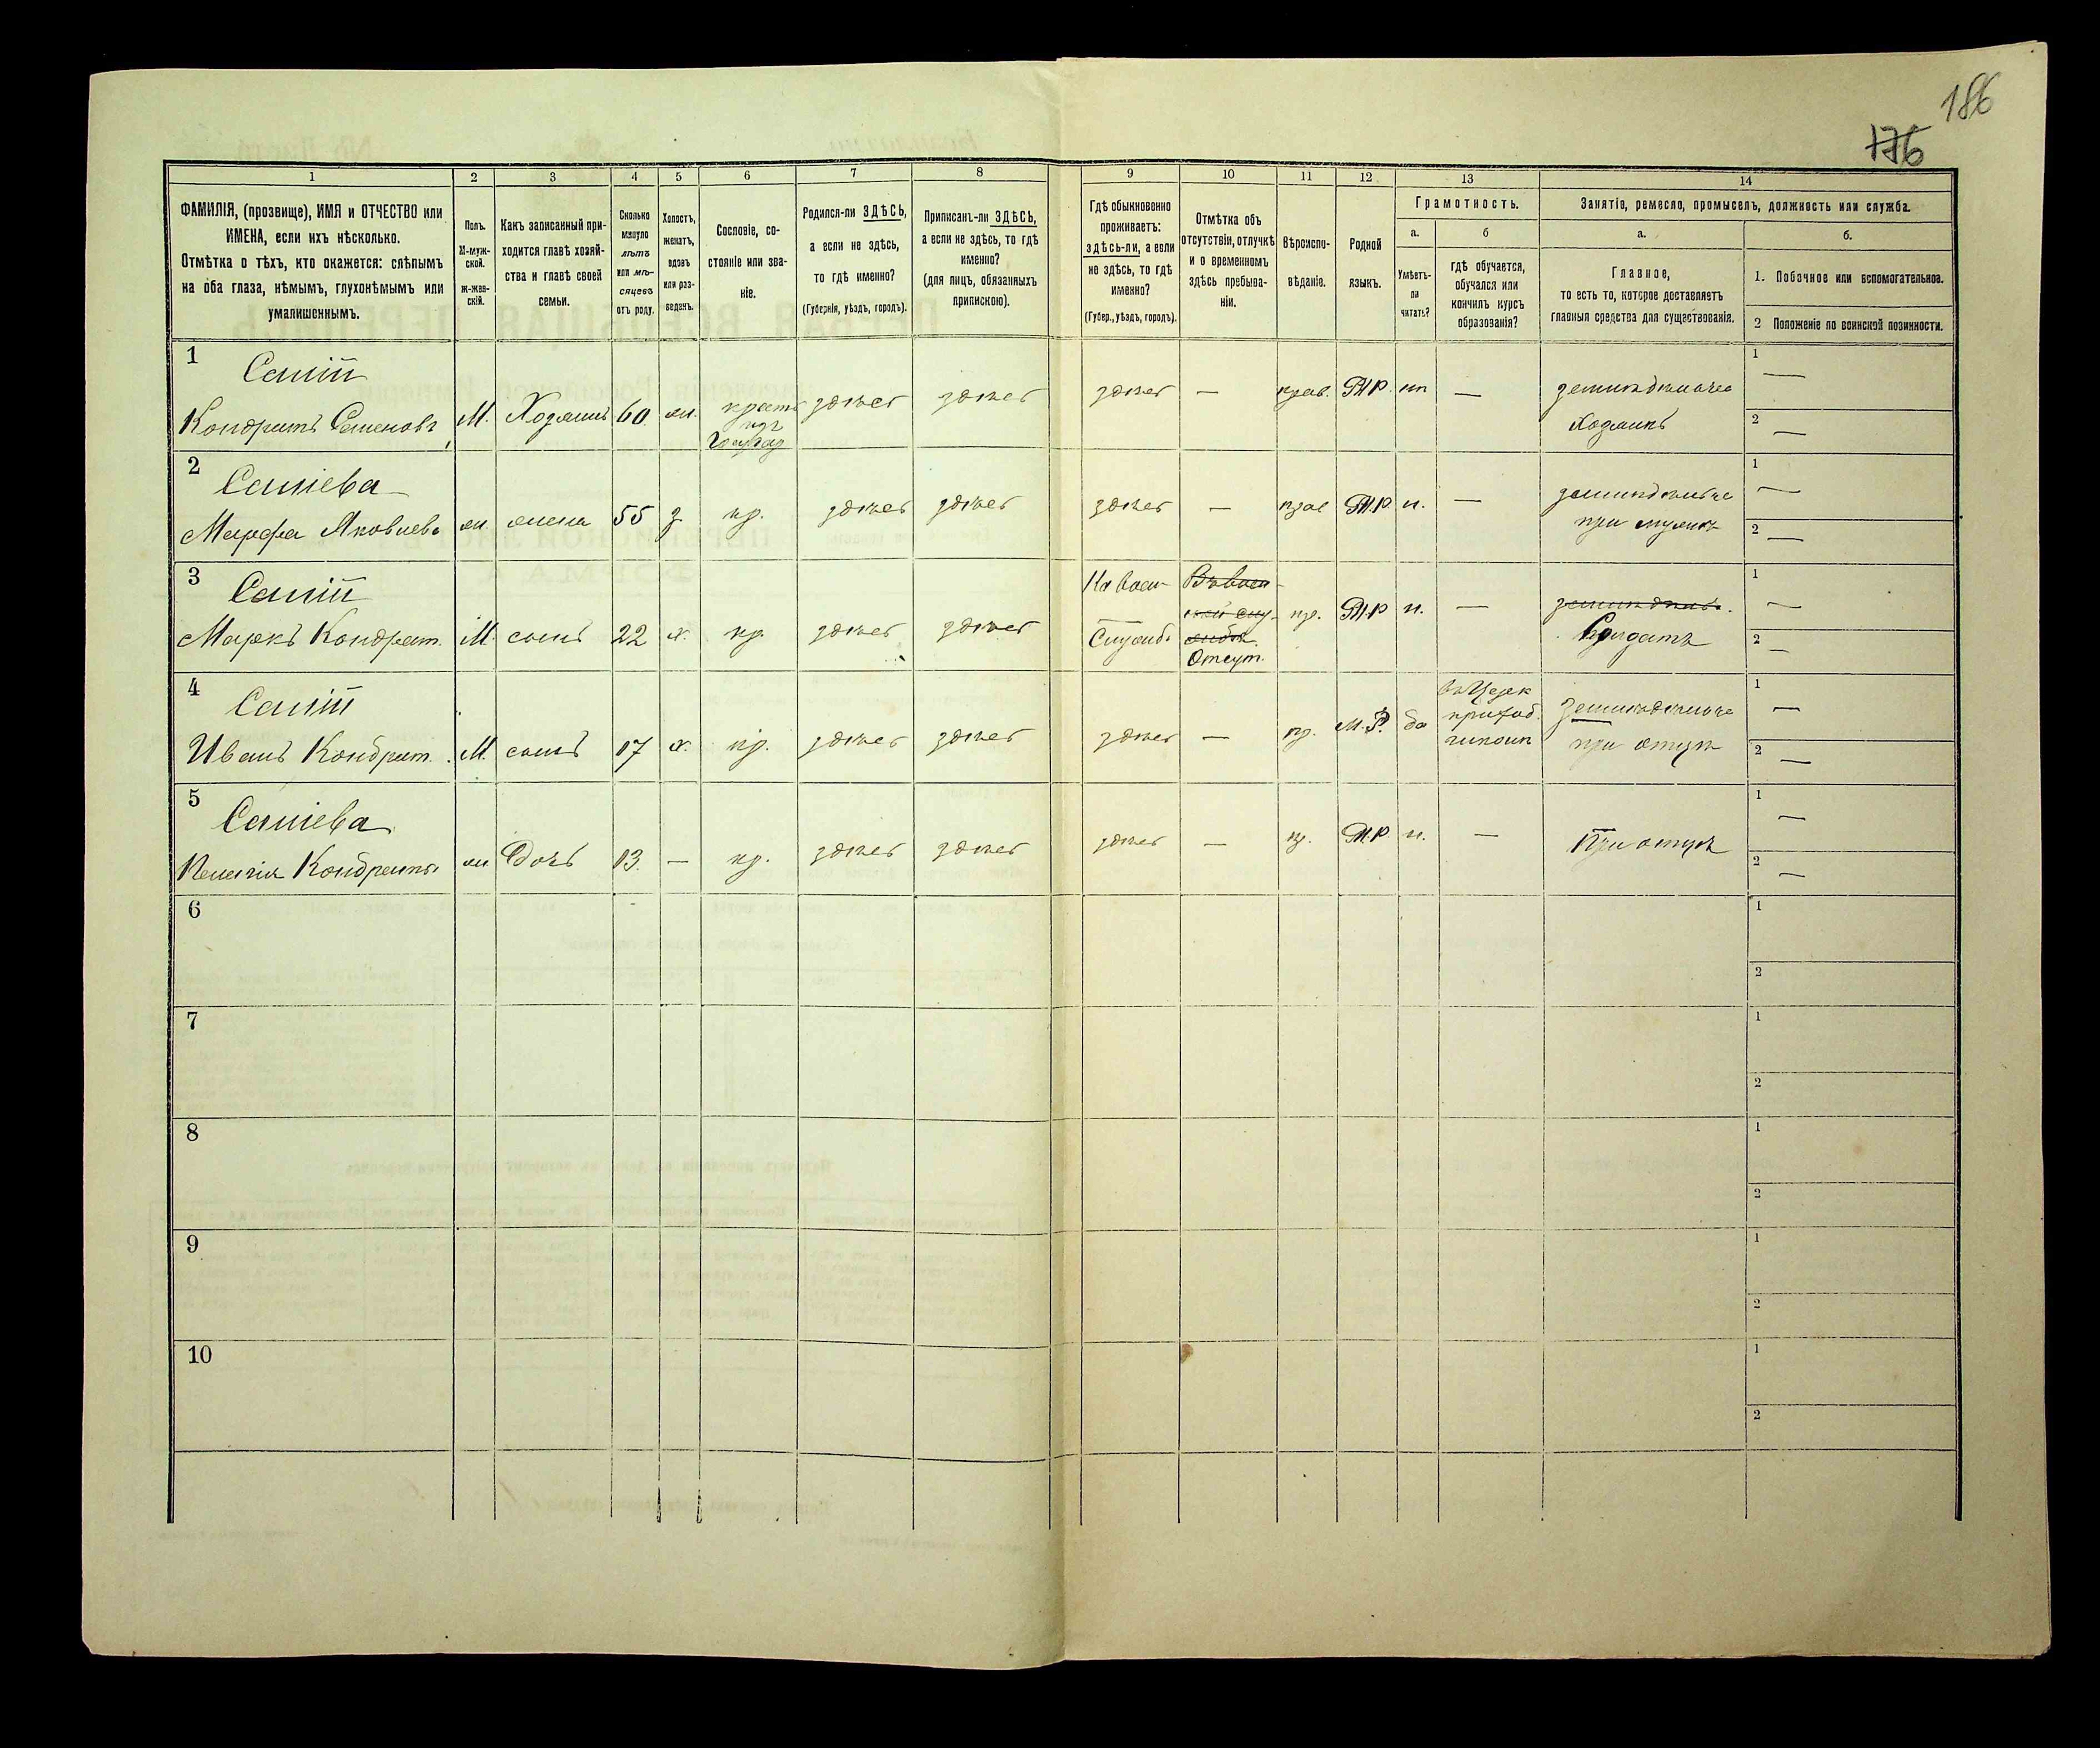 186
176
1
2
3
4
5
6
7
8
9
10
11
12
13
14
ФАМИЛІЯ, (прозвище), ИМЯ и ОТЧЕСТВО или
ИМЕНА, если ихъ нѣсколько.
Отмѣтка о тѣхъ, кто окажется: слѣпымъ
на оба глаза, нѣмымъ, глухонѣмымъ или
умалишеннымъ.
Полъ.
М-муж-
ской.
ж-жен-
скій.
Какъ записанный при-
ходится главѣ хозяй-
ства и главѣ своей
семьи.
Сколько
минуло
лѣтъ
или мѣ-
сяцевъ
отъ роду.
Холостъ,
женатъ,
вдовъ
или раз-
веденъ.
Сословіе, со-
стояніе или зва-
ніе.
Родился-ли ЗДѢСЬ,
а если не здѣсь,
то гдѣ именно?
(Губернія, уѣздъ, городъ).
Приписанъ-ли ЗДѢСЬ,
а если не здѣсь, то гдѣ
именно?
(для лицъ, обязанныхъ
припискою).
Гдѣ обыкновенно
проживаетъ:
здѣсь-ли, а если
не здѣсь, то гдѣ
именно?
(Губер., уѣздъ, городъ).
Отмѣтка объ
отсутствіи, отлучкѣ
и о временномъ
здѣсь пребыва-
ніи.
Вѣроиспо-
вѣданіе.
Родной
языкъ.
Грамотность.
а.
Умѣетъ-
ли
читать?
б
гдѣ обучается,
обучался или
кончилъ курсъ
образованія?
Занятіе, ремесло, промыселъ, должность или служба.
а.
Главное,
то есть то, которое доставляетъ
главныя средства для существованія.
б.
1. Побочное или вспомогательное.
2 Положеніе по воинской повинности.
1
Кондратъ Семеновъ М. Хозяинъ 60 ж.
здѣсь здѣсь здѣсь — прав. М.Р. —
Хозяинъ
1 —
2 —
2
Марфа Яковлева ж. жена 55 з кр. здѣсь здѣсь здѣсь — прав М.Р. н. —
при мужѣ
1 —
2 —
3
Маркъ Кондрат. М. сынъ 22 х. кр. здѣсь здѣсь
На воен-
Служб.
Отсут.
пр. М.Р н. —
Солдатъ
1 —
2 —
4
Иванъ Кондрат. М. сынъ 17 х. кр. здѣсь здѣсь здѣсь — пр. М.Р. да
въ Церк
приход.
при отцѣ
1 —
2 —
5
Кондратьв ж Дочь 13 — кр. здѣсь здѣсь здѣсь — пр. М.Р н. — При отцѣ
1 —
2 —
6
1
2
7
1
2
8
1
2
9
1
2
10
1
2